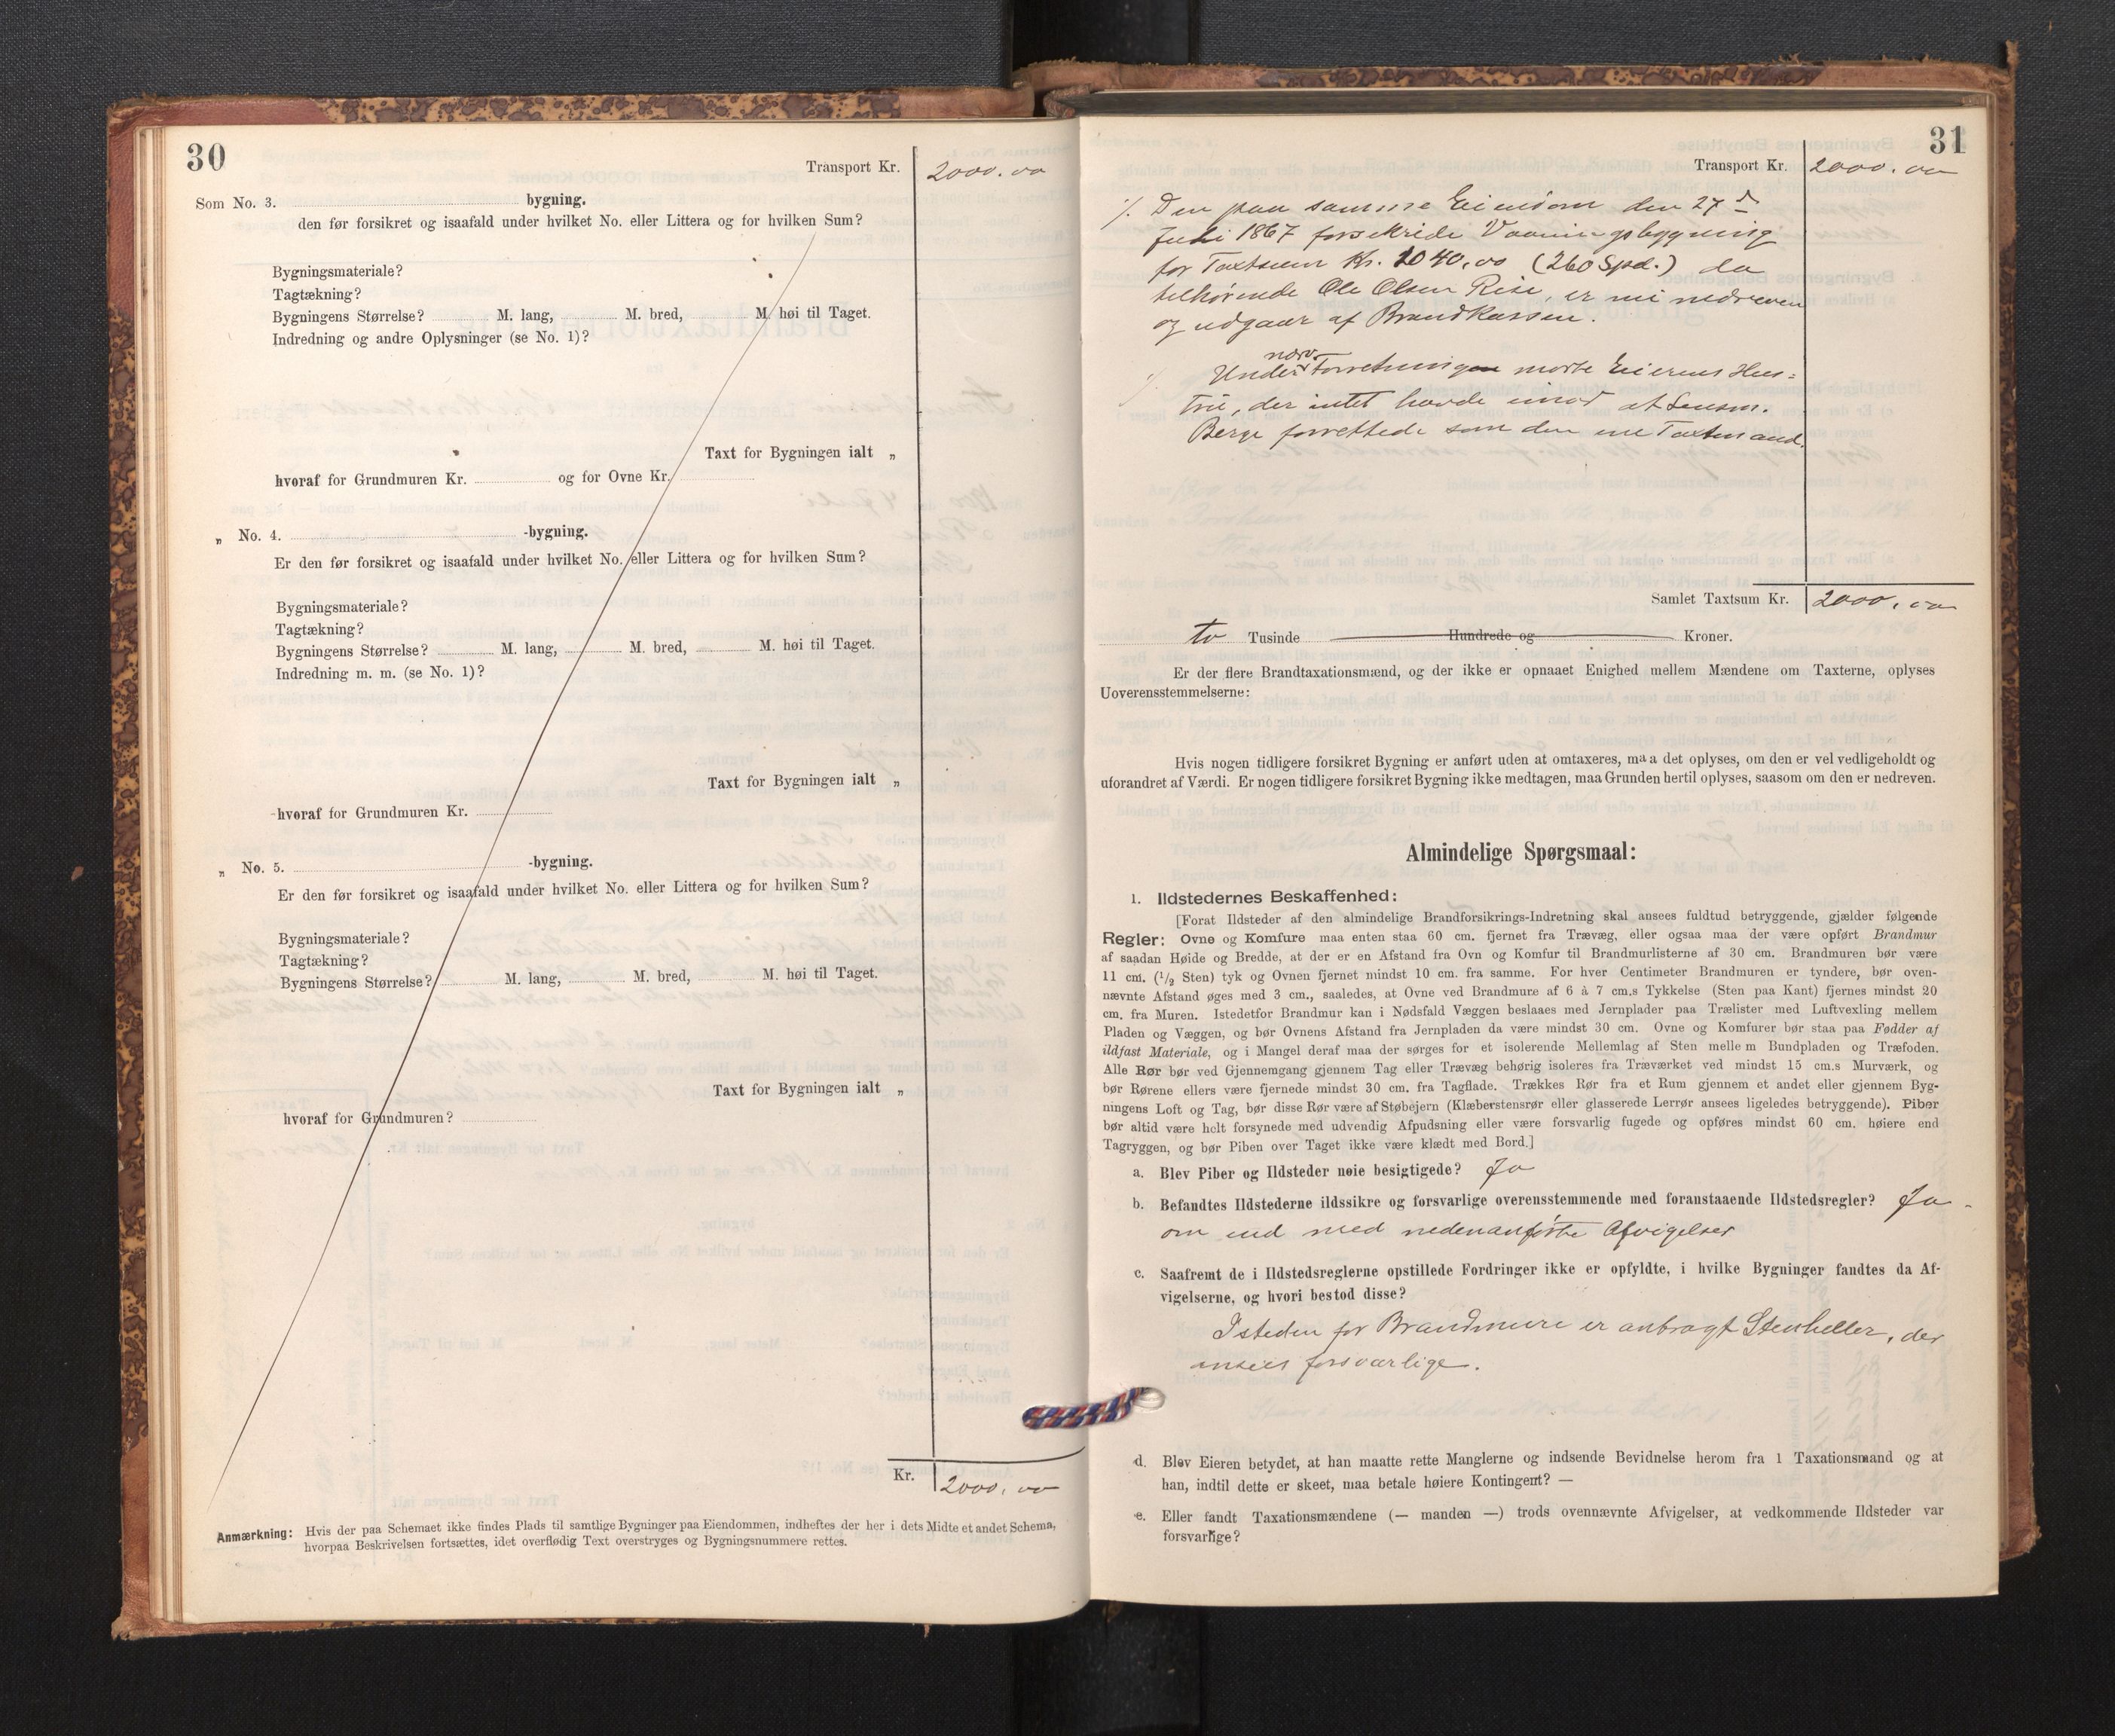 30
Transport Kr. 2000.00
Som No. 3. bygning.
den før forsikret og isaafald under hvilket No. eller Littera og for hvilken Sum?
Bygningsmateriale?
Tagtækning?
Bygningens Størrelse? M. lang, M. bred, M. høi til Taget.
Indredning og andre Oplysninger (se No. 1)?
Taxt for Bygningen ialt „
hvoraf for Grundmuren Kr. og for Ovne Kr.
„ No. 4. -bygning.
Er den før forsikret og isaafald under hvilket No. eller Littera og for hvilken Sum?
Bygningsmateriale?
Tagtækning?
Bygningens Størrelse? M. lang, M. bred, M. høi til Taget.
Indredning m. m. (se No. 1)?
Taxt for Bygningen ialt „
hvoraf for Grundmuren Kr.
„ No. 5. -bygning.
Er den før forsikret og isaafald under hvilket No. eller Littera og for hvilken Sum?
Bygningsmateriale?
Tagtækning?
Bygningens Størrelse? M. lang, M. bred, M. høi til Taget.
Taxt for Bygningen ialt „
hvoraf for Grundmuren?
Kr. 2000.00
Anmærkning: Hvis der paa Schemaet ikke findes Plads til samtlige Bygninger paa Eiendommen, indheftes der her i dets Midte et andet Schema,
hvorpaa Beskrivelsen fortsættes, idet overflødig Text overstryges og Bygningsnummere rettes.
31
Transport Kr. 2000.00
Den paa samme Eiendom den 27d
Juli 1867 forsekride Vaaningsbygning
for Taxtsum Kr. 1040,00 (260 Spd.) da
tilhørende Ole Olsen Rise, er nu nedreven
og udgaar af Brandkassen.
Under nærv. Forretningen mødte Eierens Hus=
tru, der intet havde imod at Lensm.
Berge forrettede som den ene Taxtmand.
Samlet Taxtsum Kr. 2000.00
to Tusinde Hundrede og Kroner.
Er der flere Brandtaxationsmænd, og der ikke er opnaaet Enighed mellem Mændene om Taxterne, oplyses
Uoverensstemmelserne:
Hvis nogen tidligere forsikret Bygning er anført uden at omtaxeres, maa det oplyses, om den er vel vedligeholdt og
uforandret af Værdi. Er nogen tidligere forsikret Bygning ikke medtagen, maa Grunden hertil oplyses, saasom om den er nedreven.
Almindelige Spørgsmaal:
1. Ildstedernes Beskaffenhed:
[Forat Ildsteder af den almindelige Brandforsikrings-Indretning skal ansees fuldtud betryggende, gjælder følgende
Regler: Ovne og Komfure maa enten staa 60 cm. fjernet fra Trævæg, eller ogsaa maa der være opført Brandmur
af saadan Høide og Bredde, at der er en Afstand fra Ovn og Komfur til Brandmurlisterne af 30 cm. Brandmuren bør være
11 cm. (1/2 Sten) tyk og Ovnen fjernet mindst 10 cm. fra samme. For hver Centimeter Brandmuren er tyndere, bør oven-
nævnte Afstand øges med 3 cm., saaledes, at Ovne ved Brandmure af 6 à 7 cm.s Tykkelse (Sten paa Kant) fjernes mindst 20
cm. fra Muren. Istedetfor Brandmur kan i Nødsfald Væggen beslaaes med Jernplader paa Trælister med Luftvexling mellem
Pladen og Væggen, og bør Ovnens Afstand fra Jernpladen da være mindst 30 cm. Ovne og Komfurer bør staa paa Fødder af
ildfast Materiale, og i Mangel deraf maa der sørges for et isolerende Mellemlag af Sten mellem Bundpladen og Træfoden.
Alle Rør bør ved Gjennemgang gjennem Tag eller Trævæg behørig isoleres fra Træværket ved mindst 15 cm.s Murværk, og
bør Rørene ellers være fjernede mindst 30 cm. fra Tagflade. Trækkes Rør fra et Rum gjennem et andet eller gjennem Byg-
ningens Loft og Tag, bør disse Rør være af Støbejern (Klæberstensrør eller glasserede Lerrør ansees ligeledes betryggende). Piber
bør altid være helt forsynede med udvendig Afpudsning eller være forsvarlig fugede og opføres mindst 60 cm. høiere end
Tagryggen, og bør Piben over Taget ikke være klædt med Bord.]
a. Blev Piber og Ildsteder nøie besigtigede? Ja
b. Befandtes Ildstederne ildssikre og forsvarlige overensstemmende med foranstaaende Ildstedsregler? Ja -
om end med nedenanførte Afvigelser
c. Saafremt de i Ildstedsreglerne opstillede Fordringer ikke er opfyldte, i hvilke Bygninger fandtes da Af-
vigelserne, og hvori bestod disse?
Isteden for Brandmure er anbragt Stenheller, der
ansees forsvarlige.
d. Blev Eieren betydet, at han maatte rette Manglerne og indsende Bevidnelse herom fra 1 Taxationsmand og at
han, indtil dette er skeet, maa betale høiere Kontingent? —
e. Eller fandt Taxationsmændene (— manden —) trods ovennævnte Afvigelser, at vedkommende Ildsteder var
forsvarlige?